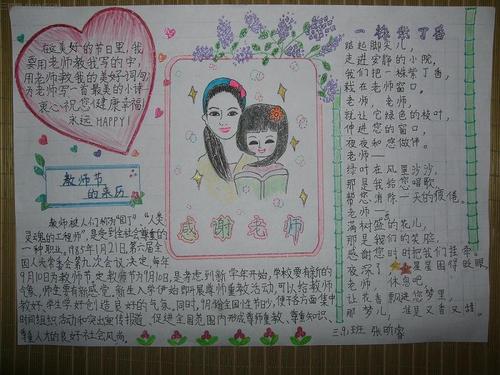 在这美好的节日里,我
要用老师教我写的字,
用老师教我的美好词句
为老师写一首最美的小诗
衷心祝您健康幸福!
永远 HAPPY!
教师节
的来历
教师被人们称为"园丁""人类
灵魂的工程师",是受到全社会尊重的
一种职业。1985年1月21日,第六届全
国人大常委会第九次会议决定,每年
9月10日为教师节。定教师节为9月10日,是考虑到新学年开始,学校要有新的
气象,师生要有新感觉。新生入学伊始即开展尊师重教活动,可以给教师
教好、学生学好创造良好的气氛。同时,9月份全国性节日少,便于各方面集中
时间组织活动和突出宣传报道,促进全国范围内形成尊师重教、尊重知识、
尊重人才的良好社会风尚。
感谢老师
一株紫丁香
踮起脚尖儿,
走进安静的小院,
我们把一株紫丁香,
栽在老师窗口。
老师,老师,
就让它绿色的枝叶,
伸进您的窗口,
夜夜和您做伴。
老师——
绿叶在风里沙沙,
那是我给您唱歌,
帮您消除一天的疲倦。
老师——
满树盛的花儿,
那是我们的笑脸,
感谢您时时把我们挂牵。
夜深了,星星困得眨眼,
老师,休息吧
让花香飘进您梦里,
那梦儿,准是又香又甜。
三.9.班 张昕睿